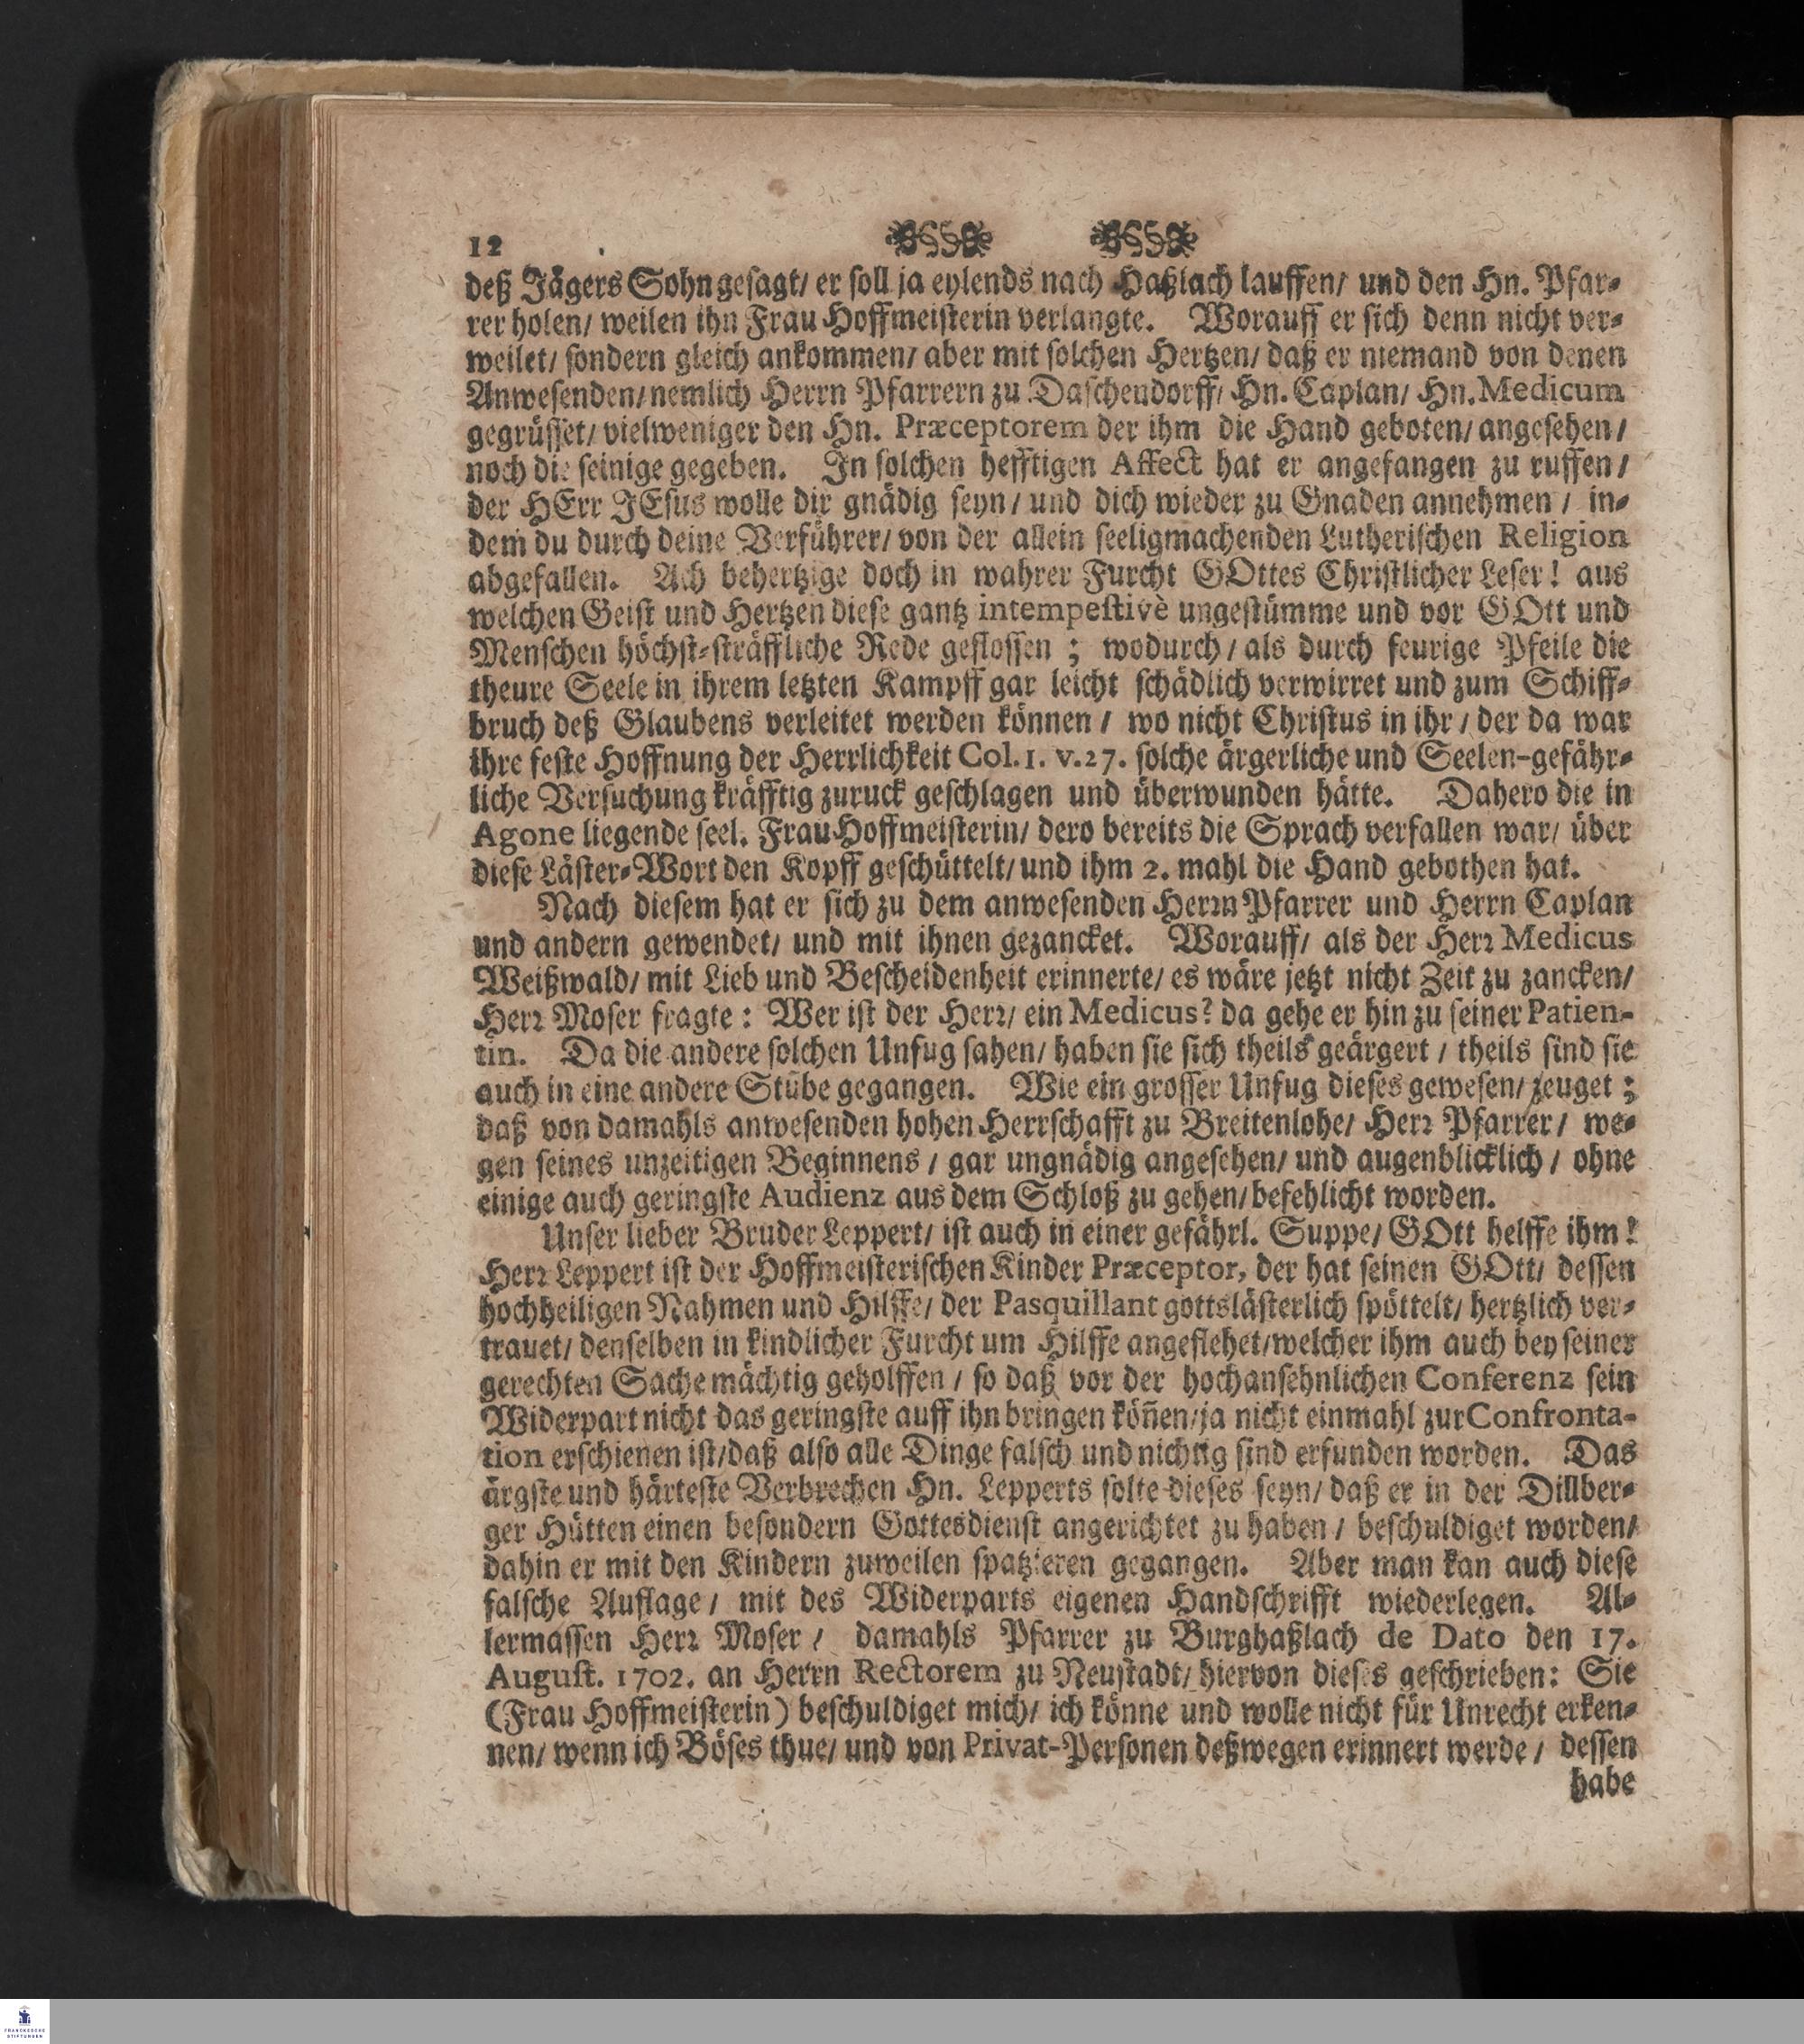 12
deß Jägers Sohn gesagt/ er soll ja eylends nach Haßlach lauffen/ und den Hn. Pfar-
rer holen/ weilen ihn Frau Hoffmeisterin verlangte. Worauff er sich denn nicht ver-
weilet/ sondern gleich ankommen/ aber mit solchen Hertzen/ daß er niemand von denen
Anwesenden/ nemlich Herrn Pfarrern zu Daschendorff/ Hn. Caplan/ Hn. Medicum
gegrüsset/ vielweniger den Hn. Præceptorem der ihm die Hand geboten/ angesehen/
noch die seinige gegeben. In solchen hefftigen Affect hat er angefangen zu ruffen/
der HErr JEsus wolle dir gnädig seyn/ und dich wieder zu Gnaden annehmen/ in-
dem du durch deine Verführer/ von der allein seeligmachenden Lutherischen Religion
abgefallen. Ach behertzige doch in wahrer Furcht GOttes Christlicher Leser! aus
welchen Geist und Hertzen diese gantz intempestivè ungestümme und vor GOtt und
Menschen höchst-sträffliche Rede geflossen; wodurch/ als durch feurige Pfeile die
theure Seele in ihrem letzten Kampff gar leicht schädlich verwirret und zum Schiff-
bruch deß Glaubens verleitet werden können/ wo nicht Christus in ihr/ der da war
ihre feste Hoffnung der Herrlichkeit Col. 1. v. 27. solche ärgerliche und Seelen-gefähr-
liche Versuchung kräfftig zuruck geschlagen und überwunden hätte. Dahero die in
Agone liegende seel. Frau Hoffmeisterin/ dero bereits die Sprach verfallen war/ über
diese Läster-Wort den Kopff geschüttelt/ und ihm 2. mahl die Hand gebothen hat.
Nach diesem hat er sich zu dem anwesenden Herrn Pfarrer und Herrn Caplan
und andern gewendet/ und mit ihnen gezancket. Worauff/ als der Herr Medicus
Weißwald/ mit Lieb und Bescheidenheit erinnerte/ es wäre jetzt nicht Zeit zu zancken/
Herr Moser fragte: Wer ist der Herr/ ein Medicus? da gehe er hin zu seiner Patien-
tin. Da die andere solchen Unfug sahen/ haben sie sich theils geärgert/ theils sind sie
auch in eine andere Stube gegangen. Wie ein grosser Unfug dieses gewesen/ zeuget;
daß von damahls anwesenden hohen Herrschafft zu Breitenlohe/ Herr Pfarrer/ we-
gen seines unzeitigen Beginnens/ gar ungnädig angesehen/ und augenblicklich/ ohne
einige auch geringste Audienz aus dem Schloß zu gehen/ befehlicht worden.
Unser lieber Bruder Leppert/ ist auch in einer gefährl. Suppe/ GOtt helffe ihm!
Herr Leppert ist der Hoffmeisterischen Kinder Præceptor, der hat seinen GOtt/ dessen
hochheiligen Nahmen und Hilffe/ der Pasquillant gottslästerlich spöttelt/ hertzlich ver-
trauet/ denselben in kindlicher Furcht um Hilffe angeflehet/ welcher ihm auch bey seiner
gerechten Sache mächtig geholffen/ so daß vor der hochansehnlichen Conferenz sein
Widerpart nicht das geringste auff ihn bringen köñen/ ja nicht einmahl zur Confronta-
tion erschienen ist/ daß also alle Dinge falsch und nichtig sind erfunden worden. Das
ärgste und härteste Verbrechen Hn. Lepperts solte dieses seyn/ daß er in der Dillber-
ger Hütten einen besondern Gottesdienst angerichtet zu haben/ beschuldiget worden/
dahin er mit den Kindern zuweilen spatzieren gegangen. Aber man kan auch diese
falsche Auflage/ mit des Widerparts eigenen Handschrifft wiederlegen. Al-
lermassen Herr Moser/ damahls Pfarrer zu Burghaßlach de Dato den 17.
August. 1702. an Herrn Rectorem zu Neustadt/ hiervon dieses geschrieben: Sie
(Frau Hoffmeisterin) beschuldiget mich/ ich könne und wolle nicht für Unrecht erken-
nen/ wenn ich Böses thue/ und von Privat-Personen deßwegen erinnert werde/ dessen
habe
FRANCKESCHE
STIFTUNGEN